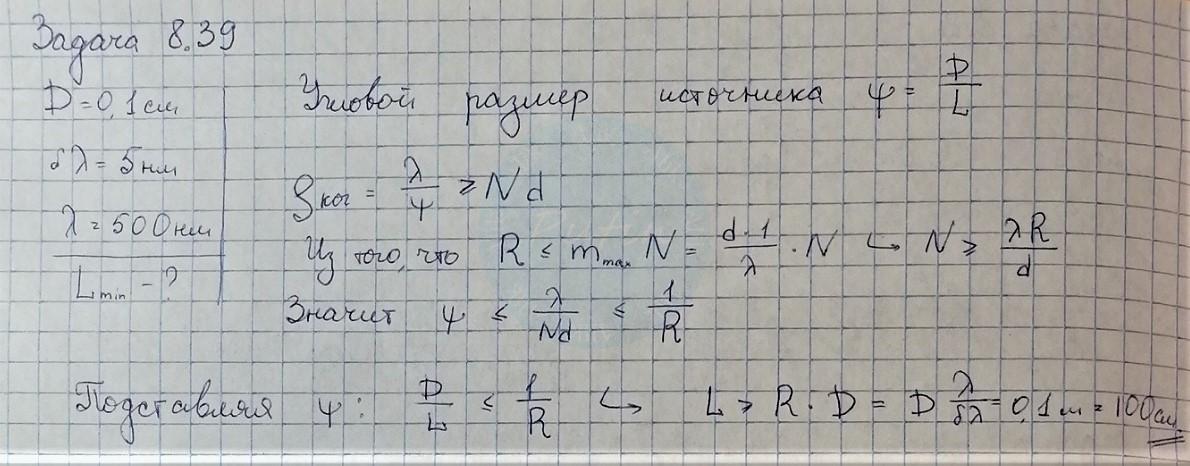 Задача 8.39
D = 0,1 см
δλ = 5 нм
λ = 500 нм
L min - ?
Угловой размер источника ψ = D/L
ρ ког = λ/ψ ≥ N d
Из того, что R ≤ m max N = d·1/λ · N ↳ N ≥ λR/d
Значит ψ ≤ λ/Nd ≤ 1/R
Подставляя ψ: D/L ≤ 1/R ↳ L ≥ R·D = D λ/δλ = 0,1 м = 100 см